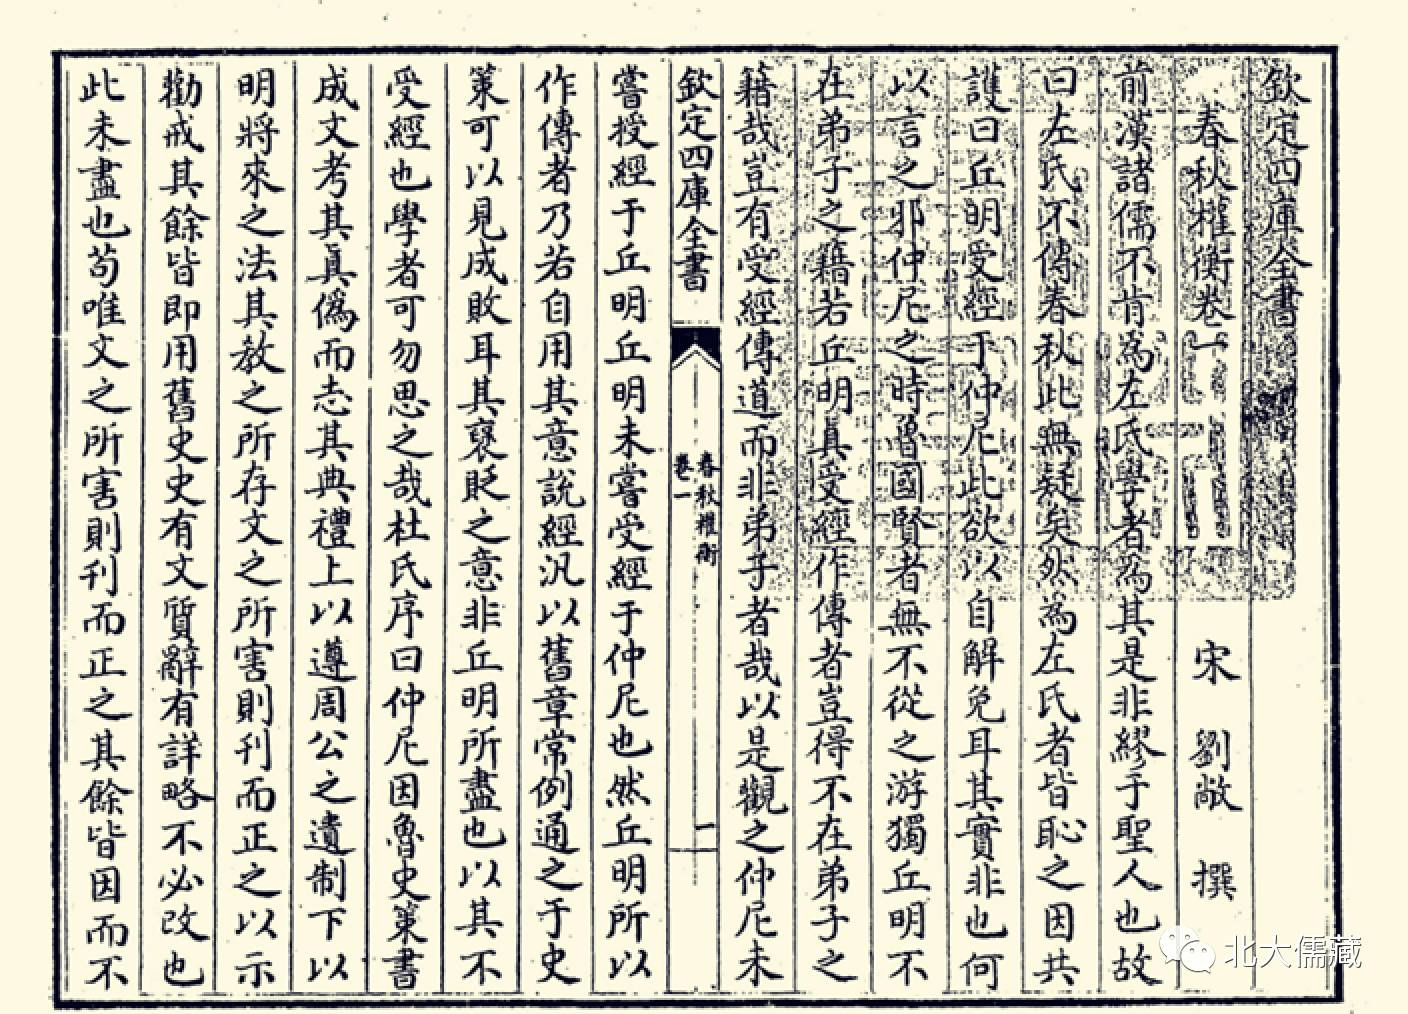 欽定四庫全書
春秋權衡卷一
宋 劉敞 撰
前漢諸儒不肯為左氏學者為其是非繆于聖人也故
曰左氏不傳春秋此無疑矣然為左氏者皆恥之因共
護曰丘明受經于仲尼此欲以自解免耳其實非也何
以言之邪仲尼之時魯國賢者無不從之游獨丘明不
在弟子之籍若丘明真受經作傳者豈得不在弟子之
籍哉豈有受經傳道而非弟子者哉以是觀之仲尼未
欽定四庫全書
春秋權衡
卷一
一
嘗授經于丘明丘明未嘗受經于仲尼也然丘明所以
作傳者乃若自用其意說經汎以舊章常例通之于史
策可以見成敗耳其襃貶之意非丘明所盡也以其不
受經也學者可勿思之哉杜氏序曰仲尼因魯史策書
成文考其真偽而志其典禮上以遵周公之遺制下以
明將來之法其教之所存文之所害則刊而正之以示
勸戒其餘皆即用舊史史有文質辭有詳略不必改也
此未盡也茍唯文之所害則刊而正之其餘皆因而不
北大儒藏